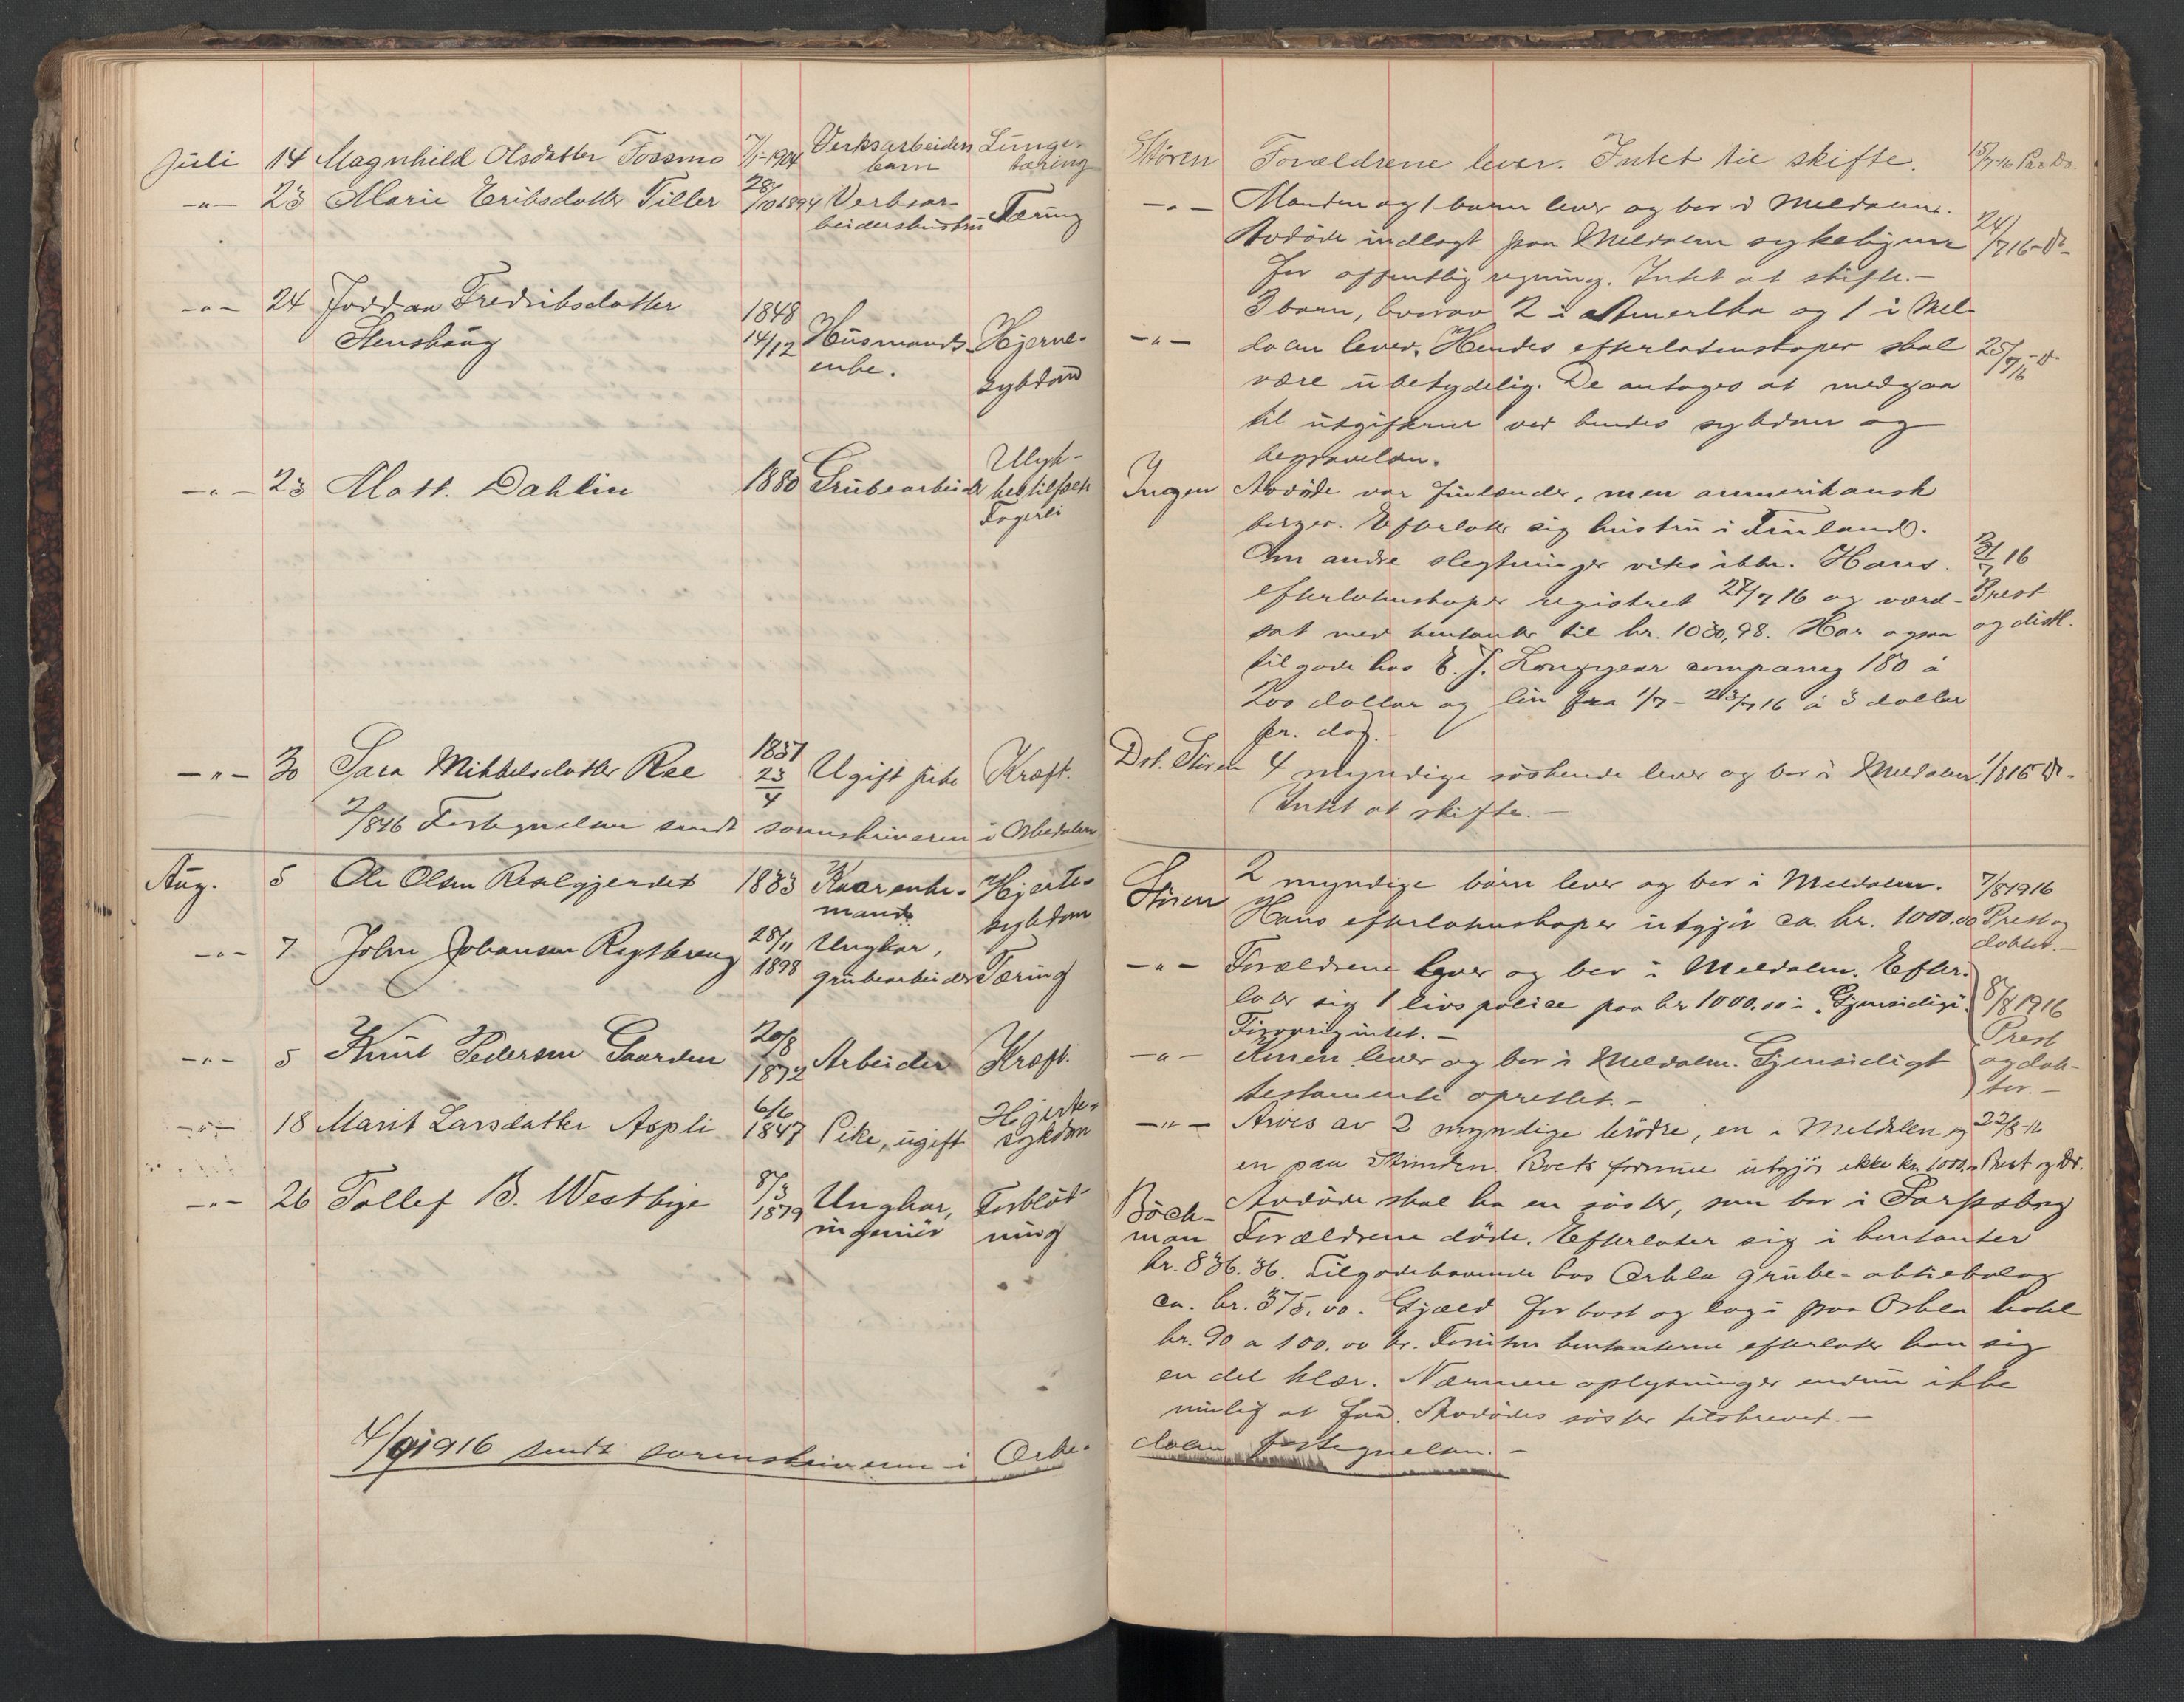 Juli 14 Magnhild Olsdatter Fossmo 7/1-1904 Verksarbeiders barn Lunge-tæring
-"- 23 Marie Eriksdatter Tiller 28/10 1894 Verksar-beidershustru Tæring
-"- 24 Fredriksdatter
Stenshaug 1848 14/12 Husmands-enke. Hjerne-sykdom
-"- 23 Matt. Dahlin 1880 Grubearbeider Ulyk-kestilfælde Fagerli
-"- 30 Sara Mikkelsdatter Ree 1837 23/4 Ugift pike Kræft.
2/8 16 Fortegnelsen sendt sorenskriveren i Orkedalen
Aug. 5 Ole Olsen 1833 Kaarenke-mand Hjerte-sykdom
-"- 7 John Johansen 28/11 1898 Ungkar, grubearbeider Tæring
-"- 5 Knut Pedersen Gaarden 20/8 1872 Arbeider Kræft.
-"- 18 Marit Larsdatter Aspli 6/6 1847 Pike, ugift Hjerte-sykdom
-"- 26 Tollef B. Westbye 8/3 1879 Ungkar, ingeniør Forblød-ning
4/9 1916 sendt sorenskriveren i Orke-
Støren Forældrene lever. Intet til skifte. 15/7-16 Pr. Dr.
-"- Manden og 1 barn lever og bor i Meldalen.
Avdøde indlagt paa Meldalen sykehjem 24/7 16 - Dr -
for offentlig regning. Intet at skifte.-
3 barn, hvorav 2 i Amerika og 1 i Mel-
-"- dalen lever. Hendes efterlatenskaper skal 25/7 16 - Dr
være ubetydelig. De antages at medgaa
til utgifterne ved hendes sykdom og
begravelse.
Ingen Avdøde var finlænder, men amerikansk
borger. Efterlater sig hustru i Finland.
Om andre slegtninger vites ikke. Hans 31/7 16
efterlatenskaper registret 27/7 16 og værd- Prest
sat med kontanter til kr. 1030,98. Har ogsaa og distl.
tilgode hos E. J. Longyear company 180 à
200 dollar og løn fra 1/7 - 23/7 16 à 3 dollar
pr. dag.
Drl. Støren 4 myndige søskende lever og bor i Meldalen 1/8 16 Dr -
Intet at skifte.-
Støren 2 myndige børn lever og bor i Meldalen. 7/8 1916
Hans efterlatenskaper utgjør ca. kr. 1000.00 Prest og
doktor.-
-"- Forældrene lever og bor i Meldalen. Efter-
later sig 1 livspolice paa kr 1000.00 i "Gjensidige". 8/8 1916
Forøvrig intet.- Prest
-"- Konen lever og bor i Meldalen. Gjensidigt og dok-
testamente oprettet.- tor.-
-"- Arves av 2 myndige brødre, en i Meldalen og 22/8-16
en paa Strinden. Boets formue utgjør ikke kr. 1000.- Prest og Dr.
Böck- Avdøde skal ha en søster, som bor i Sarpsborg
man Forældrene døde. Efterlater sig i kontanter
kr. 836.36. Tilgodehavende hos Orkla grube-aktiebolag
ca. kr. 375.00. Gjæld for kost og logi paa Orkla hotel
kr. 90 a 100.00 kr. Foruten kontanterne efterlater han sig
en del klær. Nærmere oplysninger endnu ikke
mulig at faa. Avdødes søster tilskrevet.-
dalen fortegnelsen.-